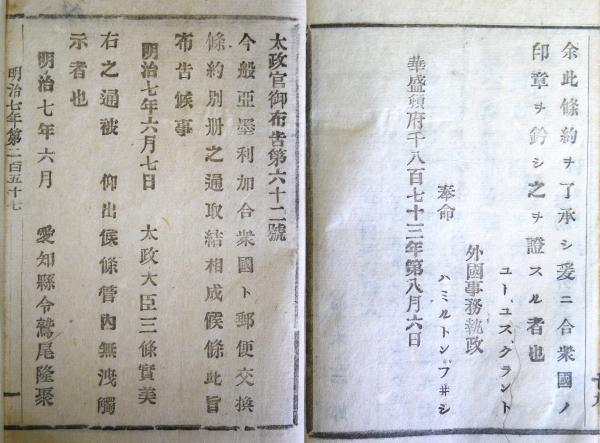 余此條約ヲ了承シ爰ニ合衆國ノ
印章ヲ鈐シ之ヲ證スル者也
ユー、ユス、グラント
外國事務執政
奉命 ハミルトン、フ井シ
華盛頓府千八百七十三年第八月六日
太政官御布告第六十二號
今般亞墨利加合衆國ト郵便交換
條約別册之通取結相成候條此旨
布告候事
明治七年六月七日 太政大臣三條實美
右之通被 仰出候條管內無洩觸
示者也
明治七年六月 愛知縣令鷲尾隆聚
明治七年第二百五十七